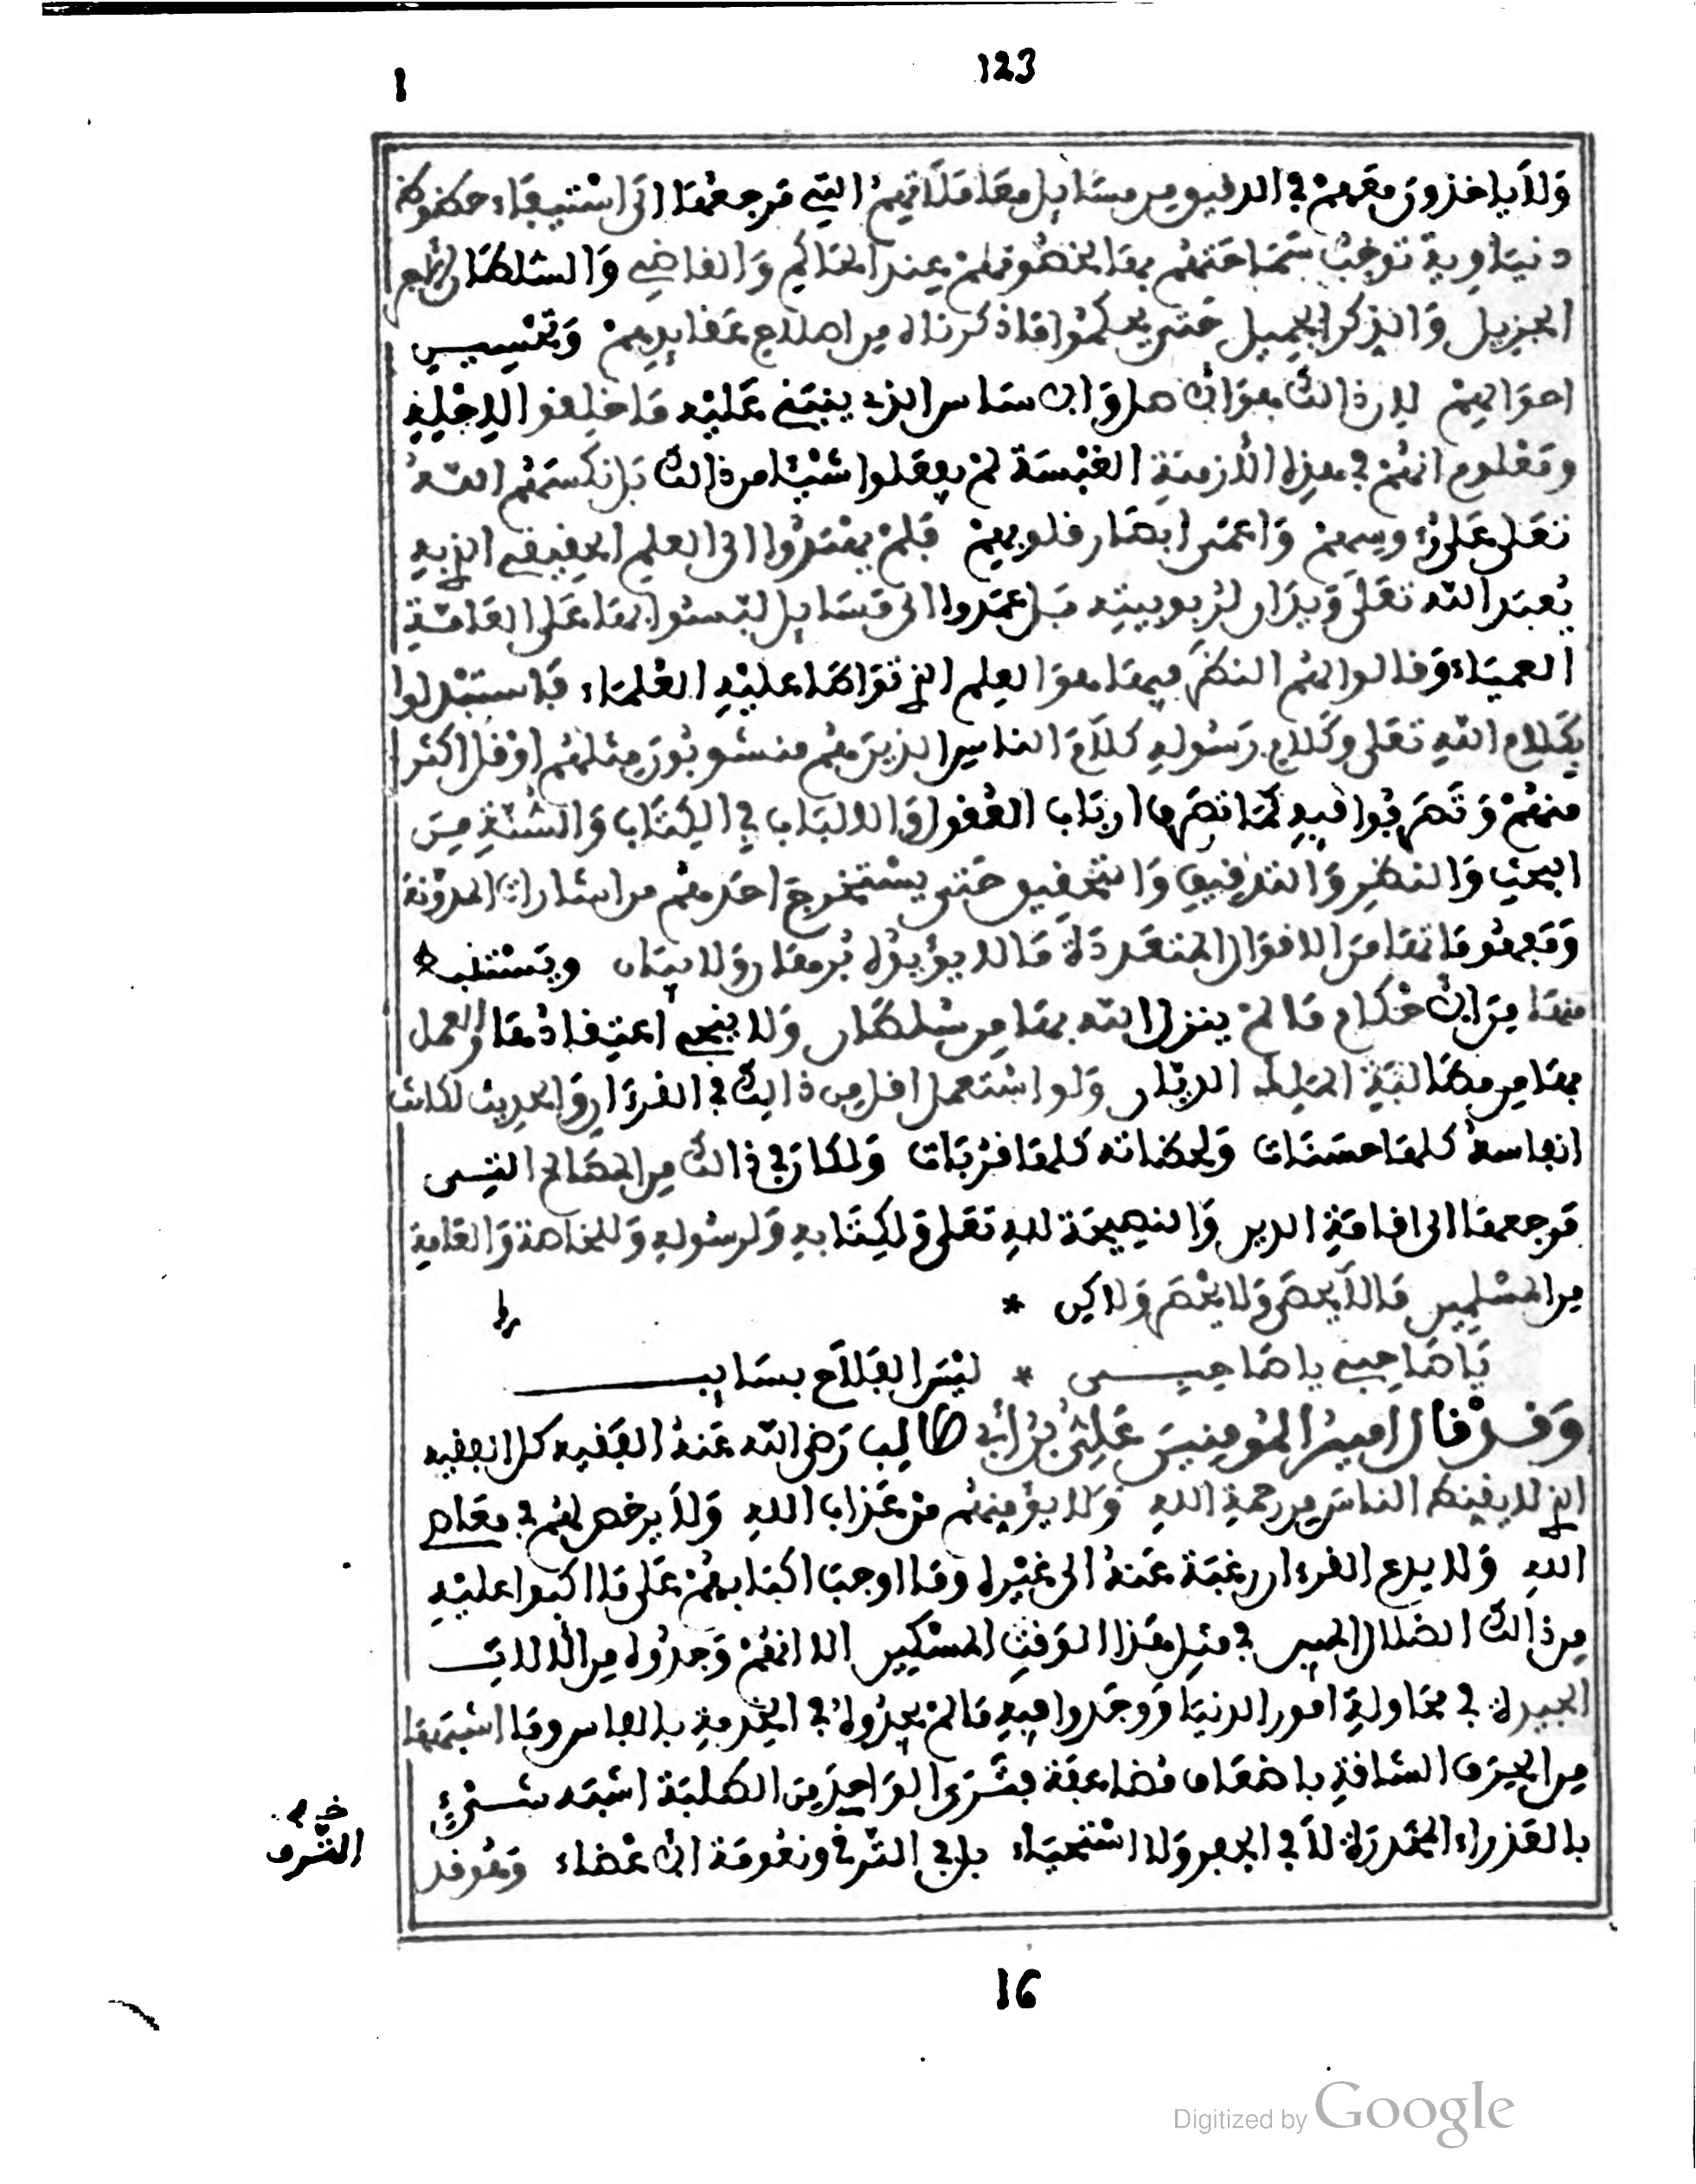 123
1
وَلاَ ياخذون معهم في الدقيق من مسائل معاملاتهم التي مرجعها الى استيفاء حظوظ
دنياوية توجب شماختهم بها الخصوماتهم عند الحاكم والقاضي والسلطان
الجزيل والذكر الجميل حتى يحكموا ما ذكرناه من اصلاح عقايدهم وتحسين
احوالهم لان ذالك هو الاصل والاساس الذي ينبني عليه
ومعلوم انهم في هذه الازمنة لم يفعلوا شيئا من ذالك بل نكستهم الله
تعلى على رءوسهم واعمى ابصار قلوبهم فلم يهتدوا الى العلم الحقيقي الذي به
يُعبد الله تعلى ويدان لربوبيته بل عمدوا الى مسايل لبّسوا بها على العامّة
العمياء وقالوا لهم النظر فيها هو العلم الذي تواطا عليه العلماء فاستبدلوا
بكلام الله تعلى وكلام رسوله كلام الناس الذين هم منسوبون مثلهم او قل اكثر
منهم وتصرفوا فيه كما تصرف ارباب العقول والالباب في الكتاب والسنة من
البحث والنظر والتدقيق والتحقيق حتى يستخرج احدهم من اشارات المدونة
ومفهوماتها من الاقوال المتعددة ما لا يؤيده برهان ولا بيان ويستنبط
منها من الاحكام ما لم ينزل الله بها من سلطان ولا ينجي اعتقادها والعمل
بها من مطالبة الملك الديان ولو استعمل اقل من ذالك في القرءان والحديث لكانت
انفاسه كلها حسنات ولحظاته كلها قربات ولكان في ذالك من المصالح التي
مرجعها الى اقامة الدين والنصيحة لله تعلى ولكتابه ولرسوله وللخاصة والعامة
من المسلمين ما لا يحصى ولا يحصر ولاكن *
يا صاحبي يا صاحبي * ليس الفلاح بسايب
وقد قال امير المومنين علي بن ابي طالب رضي الله عنه الفقيه كل الفقيه
الذي لا يقنط الناس من رحمة الله ولا يؤمنهم من عذاب الله ولا يرخص لهم في معاصي
الله ولا يدع القرءان رغبة عنه الى غيره وما اوجب اكبابهم على ما اكبوا عليه
من ذالك الضلال المبين في مثل هذا الوقت المسكين الا انهم وجدوه من الالات
الجيدة في محاولة امور الدنيا ووجدوا فيه ما لم يجدوه في الخدمة بالفاس وما اشبهها
من الحرف الشاقة باضعاف مضاعفة فترى الواحد من الطلبة اشبه شيء
بالعذراء المخدرة لا في الخفر ولا استحياء بل في الترف ونعومة الاعضاء وهو قد
الترف
16
Digitized by Google